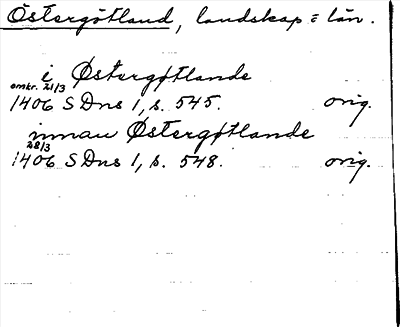 Östergötland, landskap = län.
i Østergøtlande
omkr. 21/3
1406 SDns 1, s. 545. orig.
innan Østergøtlande
28/3
1406 SDns 1, s. 548. orig.